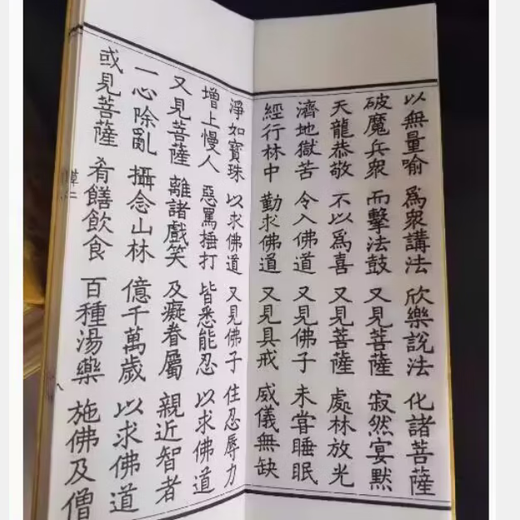 以無量喻 為眾講法 欣樂說法 化諸菩薩
破魔兵眾 而擊法鼓 又見菩薩 寂然宴默
天龍恭敬 不以為喜 又見菩薩 處林放光
濟地獄苦 令入佛道 又見佛子 未嘗睡眠
經行林中 勤求佛道 又見具戒 威儀無缺
淨如寶珠 以求佛道 又見佛子 住忍辱力
增上慢人 惡罵捶打 皆悉能忍 以求佛道
又見菩薩 離諸戲笑 及癡眷屬 親近智者
一心除亂 攝念山林 億千萬歲 以求佛道
或見菩薩 肴膳飲食 百種湯藥 施佛及僧